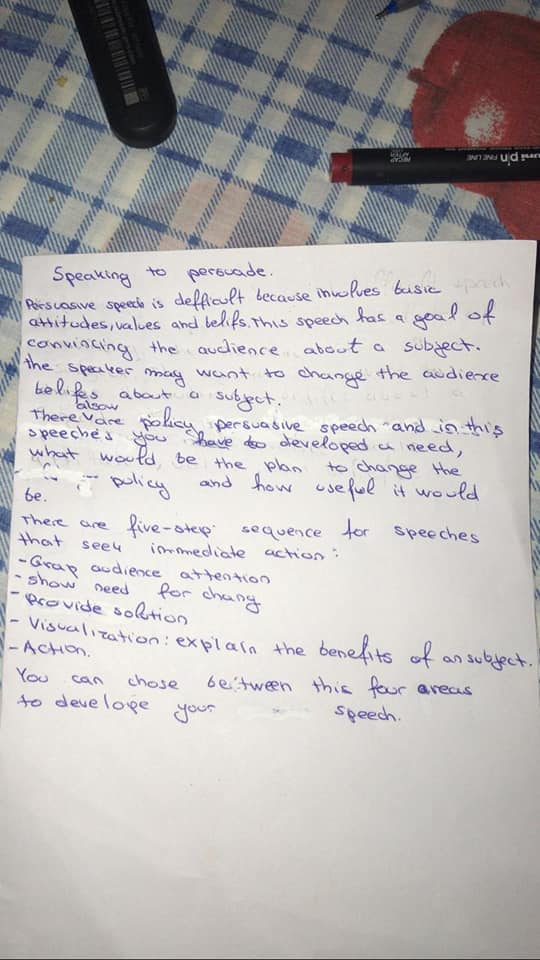 RECAP AFTER
uni pin FINE LINE
Speaking to persuade.
Persuasive speech is defficult because involves basic
attitudes, values and belifs. This speech has a goal of
convincing the audience about a subject.
the speaker may want to change the audience
belifes about a subject.
alsow
There are policy persuasive speech and in this
speeches you have to developed a need,
what would be the plan to change the
policy and how useful it would
be.
There are five-step sequence for speeches
that seek immediate action:
- Grap audience attention
- show need for chang
- Provide solution
- Visualization: explain the benefits of an subject.
- Action.
You can chose beitween this four areas
to develope your speech.